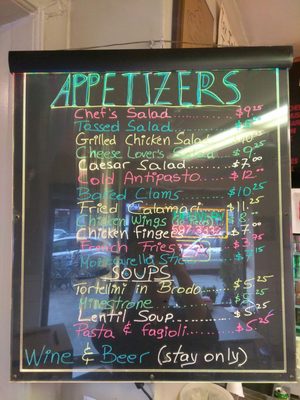 APPETIZERS
Chef's Salad........$9.25
Tossed Salad
Grilled Chicken Salad
Cheese Lover's Salad $9.25
Caesar Salad......$7.00
Cold Antipasto....$12.00
Baked Clams.......$10.25
Fried Calamari $11.25
Chicken Wings
Chicken fingers $7.00
French Fries $3.95
Mozzarella Sticks $7.15
SOUPS
Tortellini in Brodo....$5.25
Minestrone........$5.25
Lentil Soup........$5.25
Pasta & fagioli.......$5.25
Wine & Beer (stay only)